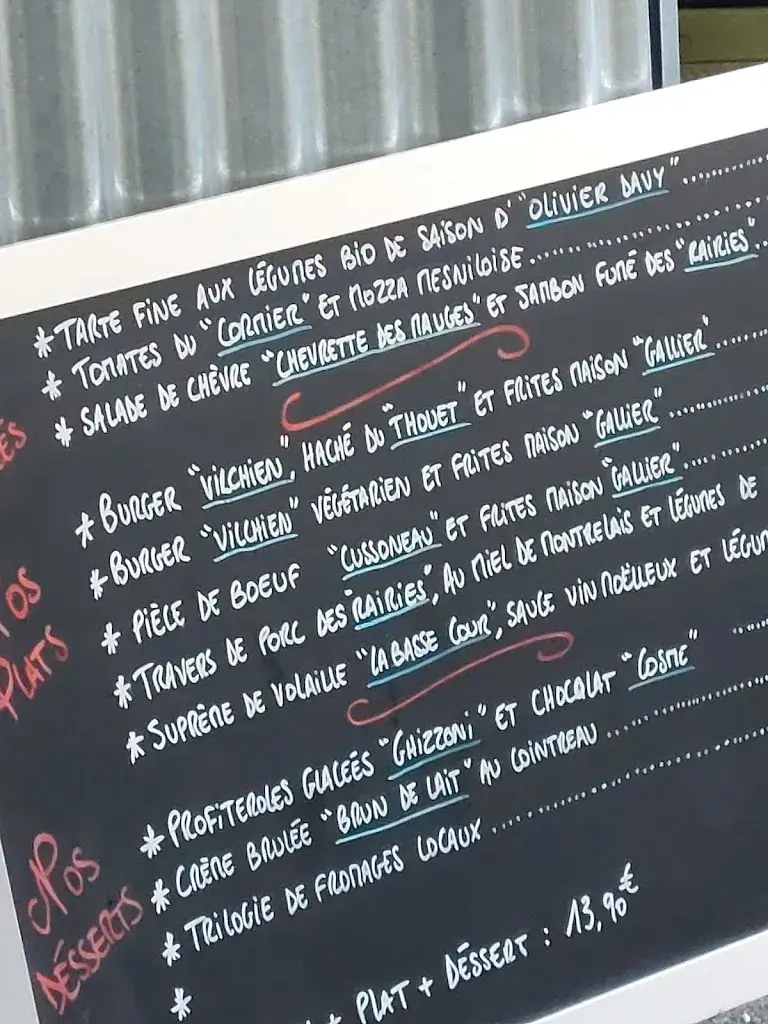 * TARTE FINE AUX LÉGUMES BIO DE SAISON D' "OLIVIER DAVY"
* TOMATES DU "CORMIER" ET MOZZA MESNILOISE
* SALADE DE CHÈVRE "CHEVRETTE DES MAUGES" ET JAMBON FUMÉ DES "RAIRIES"
* BURGER "VILCHIEN", HACHÉ DU "THOUET" ET FRITES MAISON "GALLIER"
* BURGER "VILCHIEN" VÉGÉTARIEN ET FRITES MAISON "GALLIER"
NOS PLATS
* PIÈCE DE BOEUF "CUSSONEAU" ET FRITES MAISON "GALLIER"
* TRAVERS DE PORC DES "RAIRIES", AU MIEL DE MONTRELAIS ET LÉGUMES DE
* SUPRÊME DE VOLAILLE "LA BASSE COUR", SAUCE VIN MOËLLEUX ET LÉGUM
* PROFITEROLES GLACÉES "GHIZZONI" ET CHOCOLAT "COSME"
NOS DÉSSERTS
* CRÈME BRULÉE "BRUN DE LAIT" AU COINTREAU
* TRILOGIE DE FROMAGES LOCAUX
*
+ PLAT + DÉSSERT : 13,90€